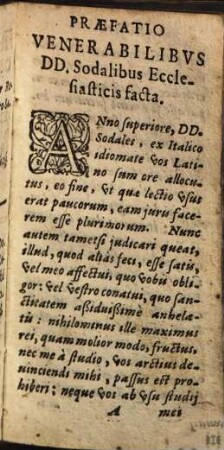 PRÆFATIO
VENERABILIBVS
DD. Sodalibus Eccle-
siasticis facta.
ANno superiore, DD.
Sodales, ex Italico
idiomate vos Lati-
no sum ore allocu-
tus, eo fine, ut quæ lectio usus
erat paucorum, eam juris face-
rem esse plurimorum. Nunc
autem tametsi judicari queat,
illud, quod aliàs feci, esse satis,
vel meo affectui, quo vobis obli-
gor: vel vestro conatui, quo san-
ctitatem aßiduissimè anhela-
tis: nihilominus ille maximus
rei, quam molior modo, fructus,
nec me à studio, vos arctius de-
vinciendi mihi, passus est pro-
hiberi: neque vos ab usu studij
A mei